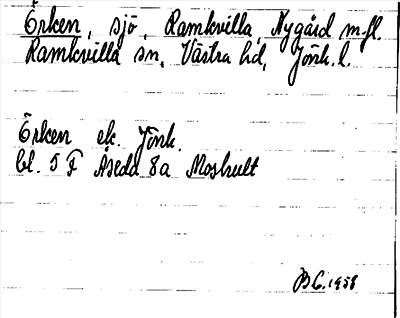 Örken, sjö, Ramkvilla, Nygård m.fl.
Ramkvilla sn, Västra hd, Jönk. l.
Örken ek. Jönk.
bl. 5 F Åseda 8a Moshult
B G. 1958